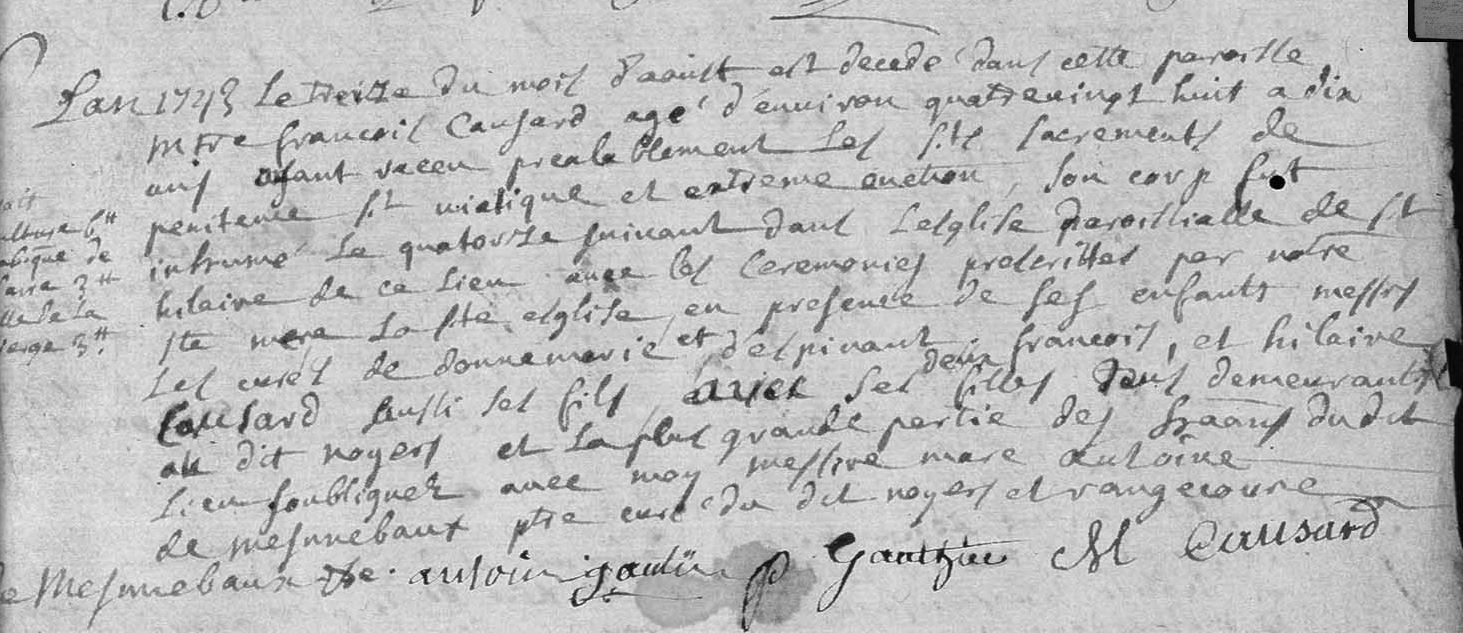 Lan 1743 le treize du mois d'aoust est decedé dans cette paroisse
mtre francois Causard agé d'environ quatrevingt huit a dix
ans ayant receu prealablement les sts sacrements de
penitence st viatique et extreme onction, son corp fut
inhumé le quatorze suivant dans l'esglise paroissialle de st
hilaire de ce lieu avec les ceremonies prescrittes par notre
ste mere la ste esglise, en presence de ses enfants messrs
les curés de donnemarie et d'espinant francois, et hilaire
Causard aussi ses fils, avec ses deux filles tous demeurants
au dit noyers et la plus grande partie des hãans du dit
lieu soubsignez avec moy messire marc antoine
de mesmebaux ptre curé du dit noyers et rangecourt
de Mesmebaux ptre. antoine gautie p Gauthie M Causard
ulture 6tt
abrique de
laire 3tt
lle de la
ierge 3tt